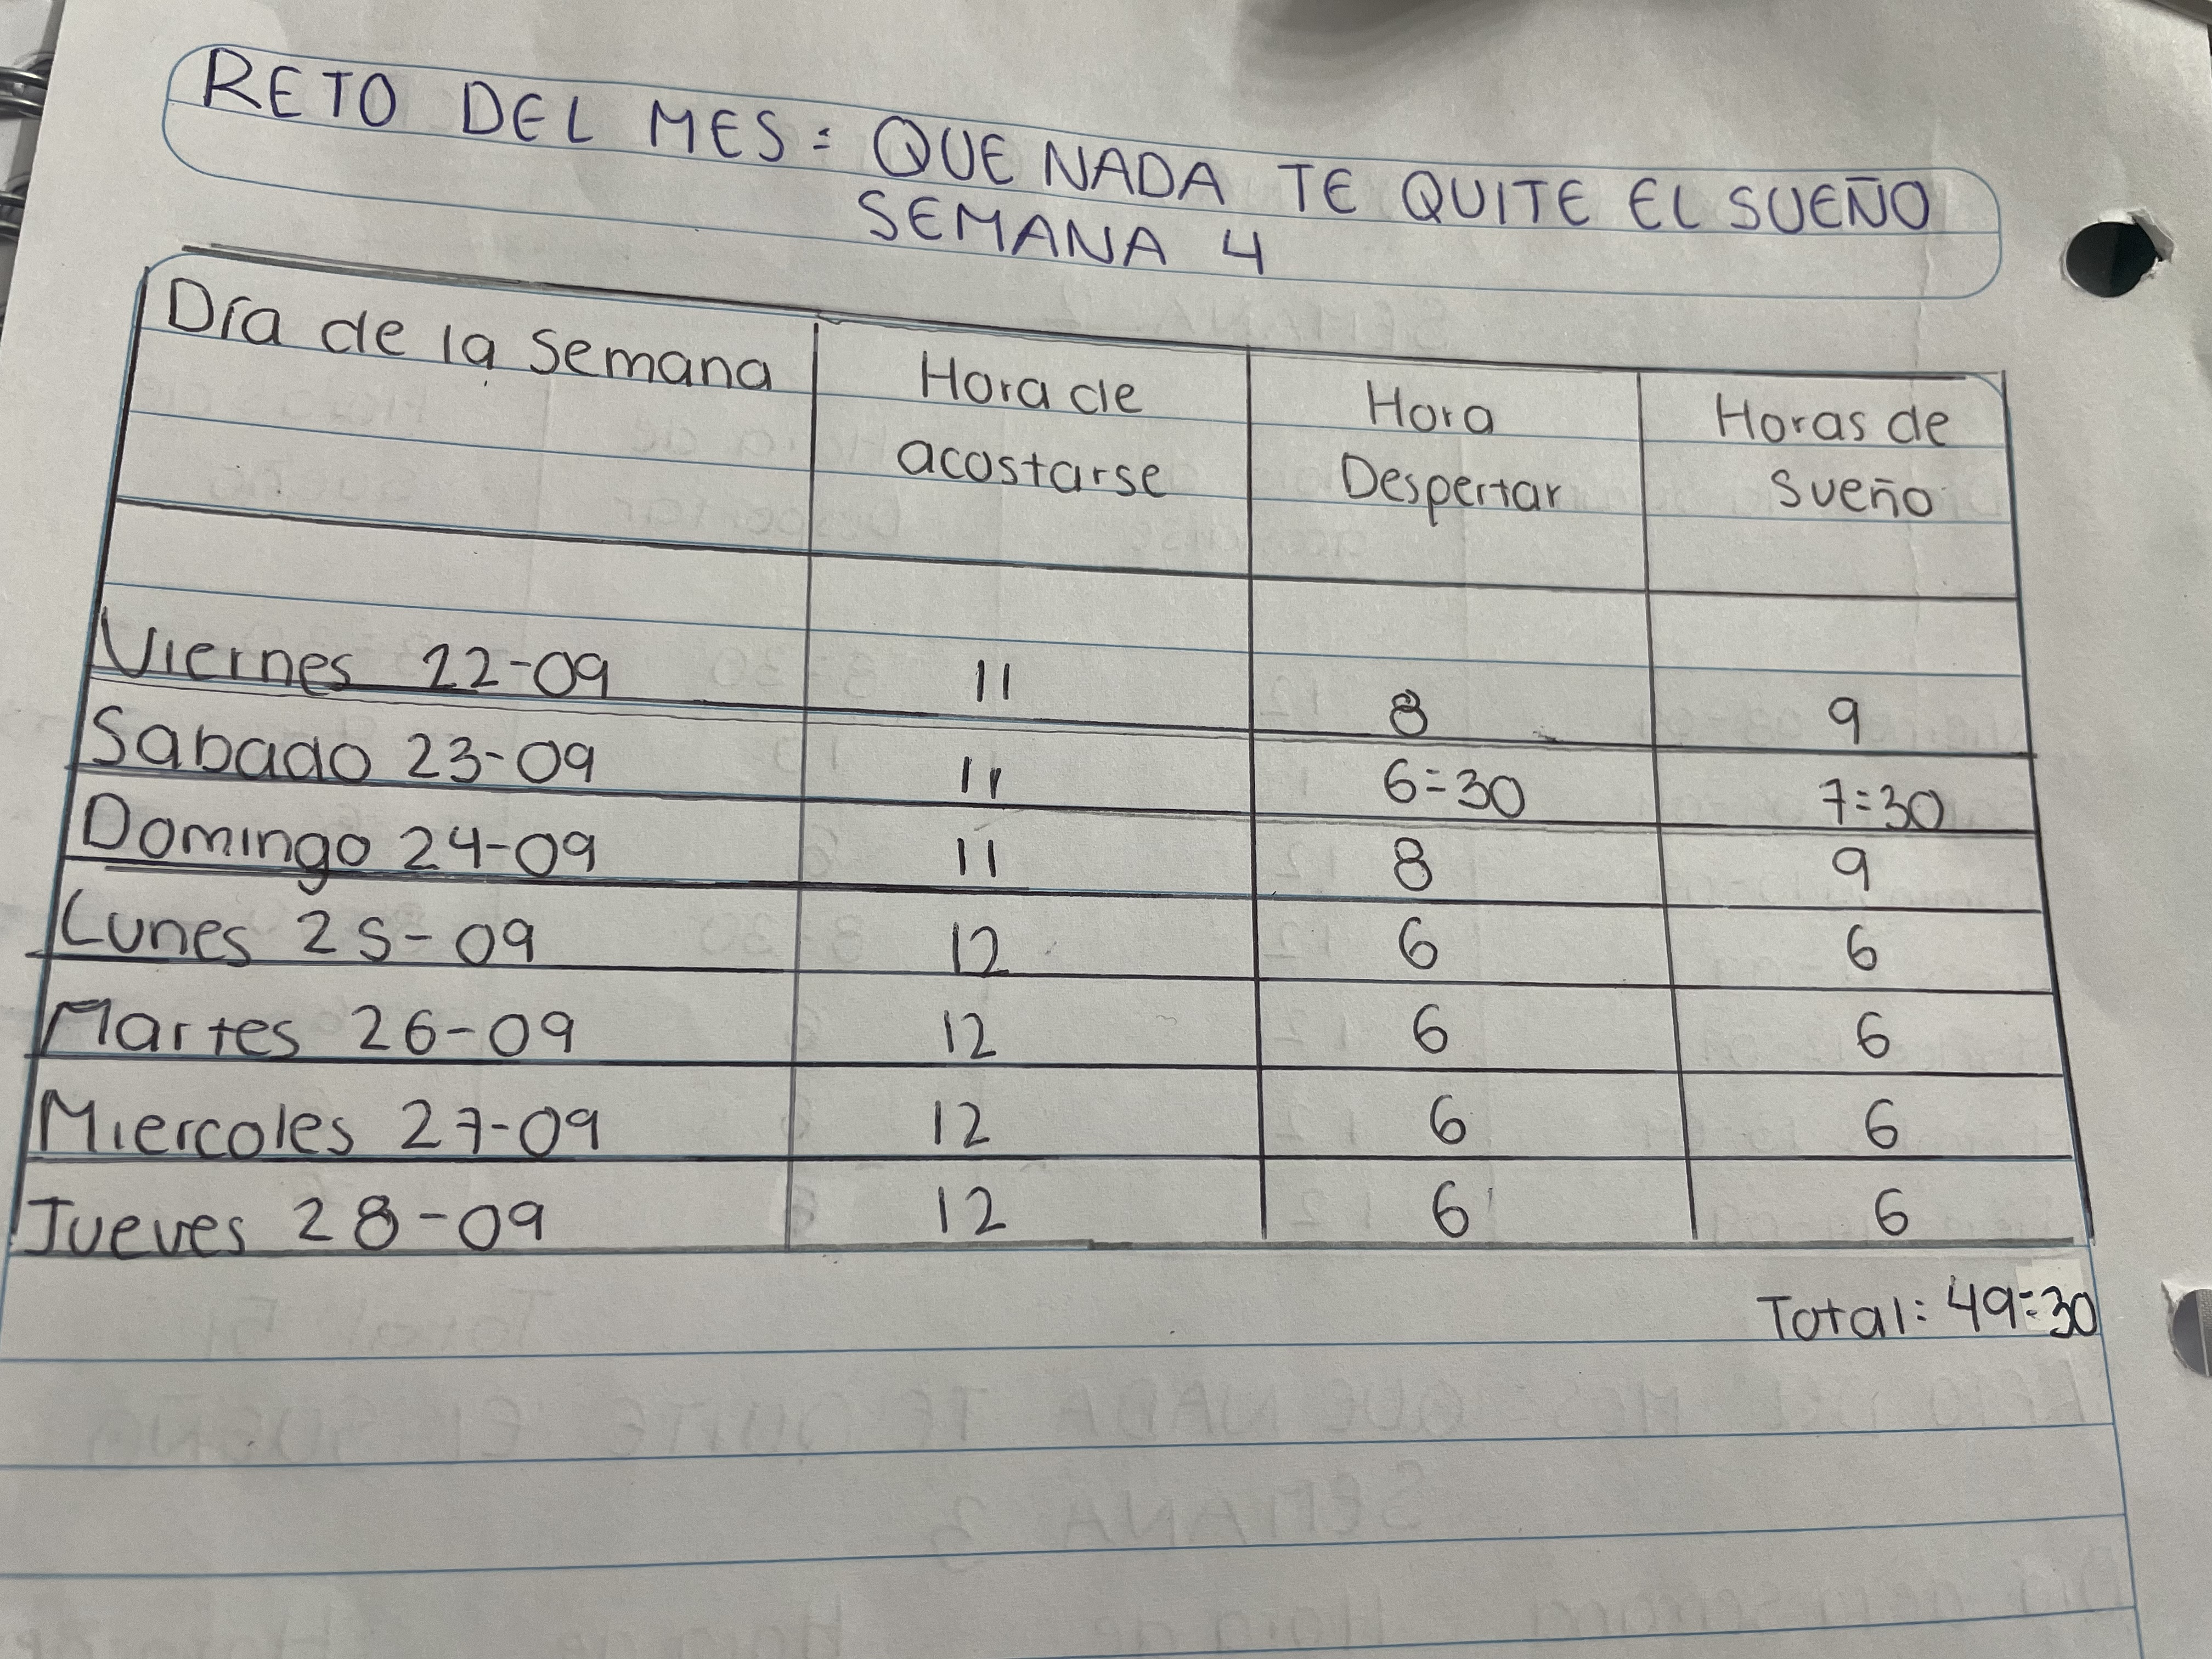 RETO DEL MES: QUE NADA TE QUITE EL SUEÑO
SEMANA 4
Día de la Semana Hora de acostarse Hora Despertar Horas de Sueño
Viernes 22-09 11 8 9
Sabado 23-09 11 6:30 7:30
Domingo 24-09 11 8 9
Lunes 25-09 12 6 6
Martes 26-09 12 6 6
Miercoles 27-09 12 6 6
Jueves 28-09 12 6 6
Total: 49:30